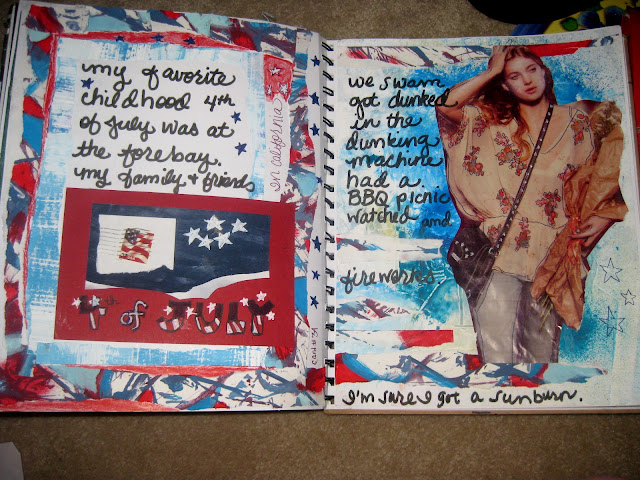 my favorite
childhood 4th
of July was at
the forebay.
my family + friends
in california
4th of JULY
card # 34
we swam
got dunked
in the
dunking
machine
had a
BBQ picnic
watched and
fireworks.
I'm sure I got a sunburn.